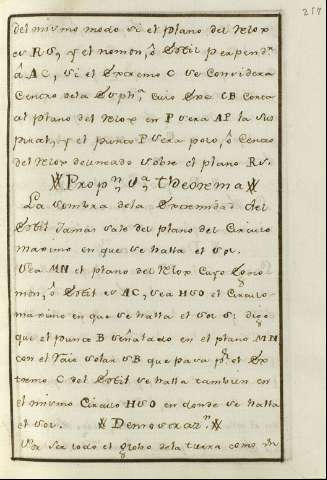 257
del mismo modo si el plano del Relox
es RS, y el nomon, ô Estil perpend.r
â AC, si el Extremo C se considera
Centro dela Supfi.e cuio Exe CB corta
al plano del Relox en P sera AP la sus
pirar, y el punto P sera poro, ô Centro
del Relox delineado sobre el plano RS.
Prop.n V.a Theorema
La sombra dela Extremidad del
Estil Jamas sale del plano del Circulo
maximo en que se halla el Sol.
Sea MN el plano del Relox Cuyo Gno
mon, ô Estil es AC, sea HSO el Circulo
maximo en que se halla el sol S: digo
que el punto B señalado en el plano MN
con el Raio solar SB que pasa p.r el Ex
tremo C del Estil se halla tambien en
el mismo Circulo HSO en donde se halla
el sol. Demostraz.n
Por ser todo el globo dela tierra como un